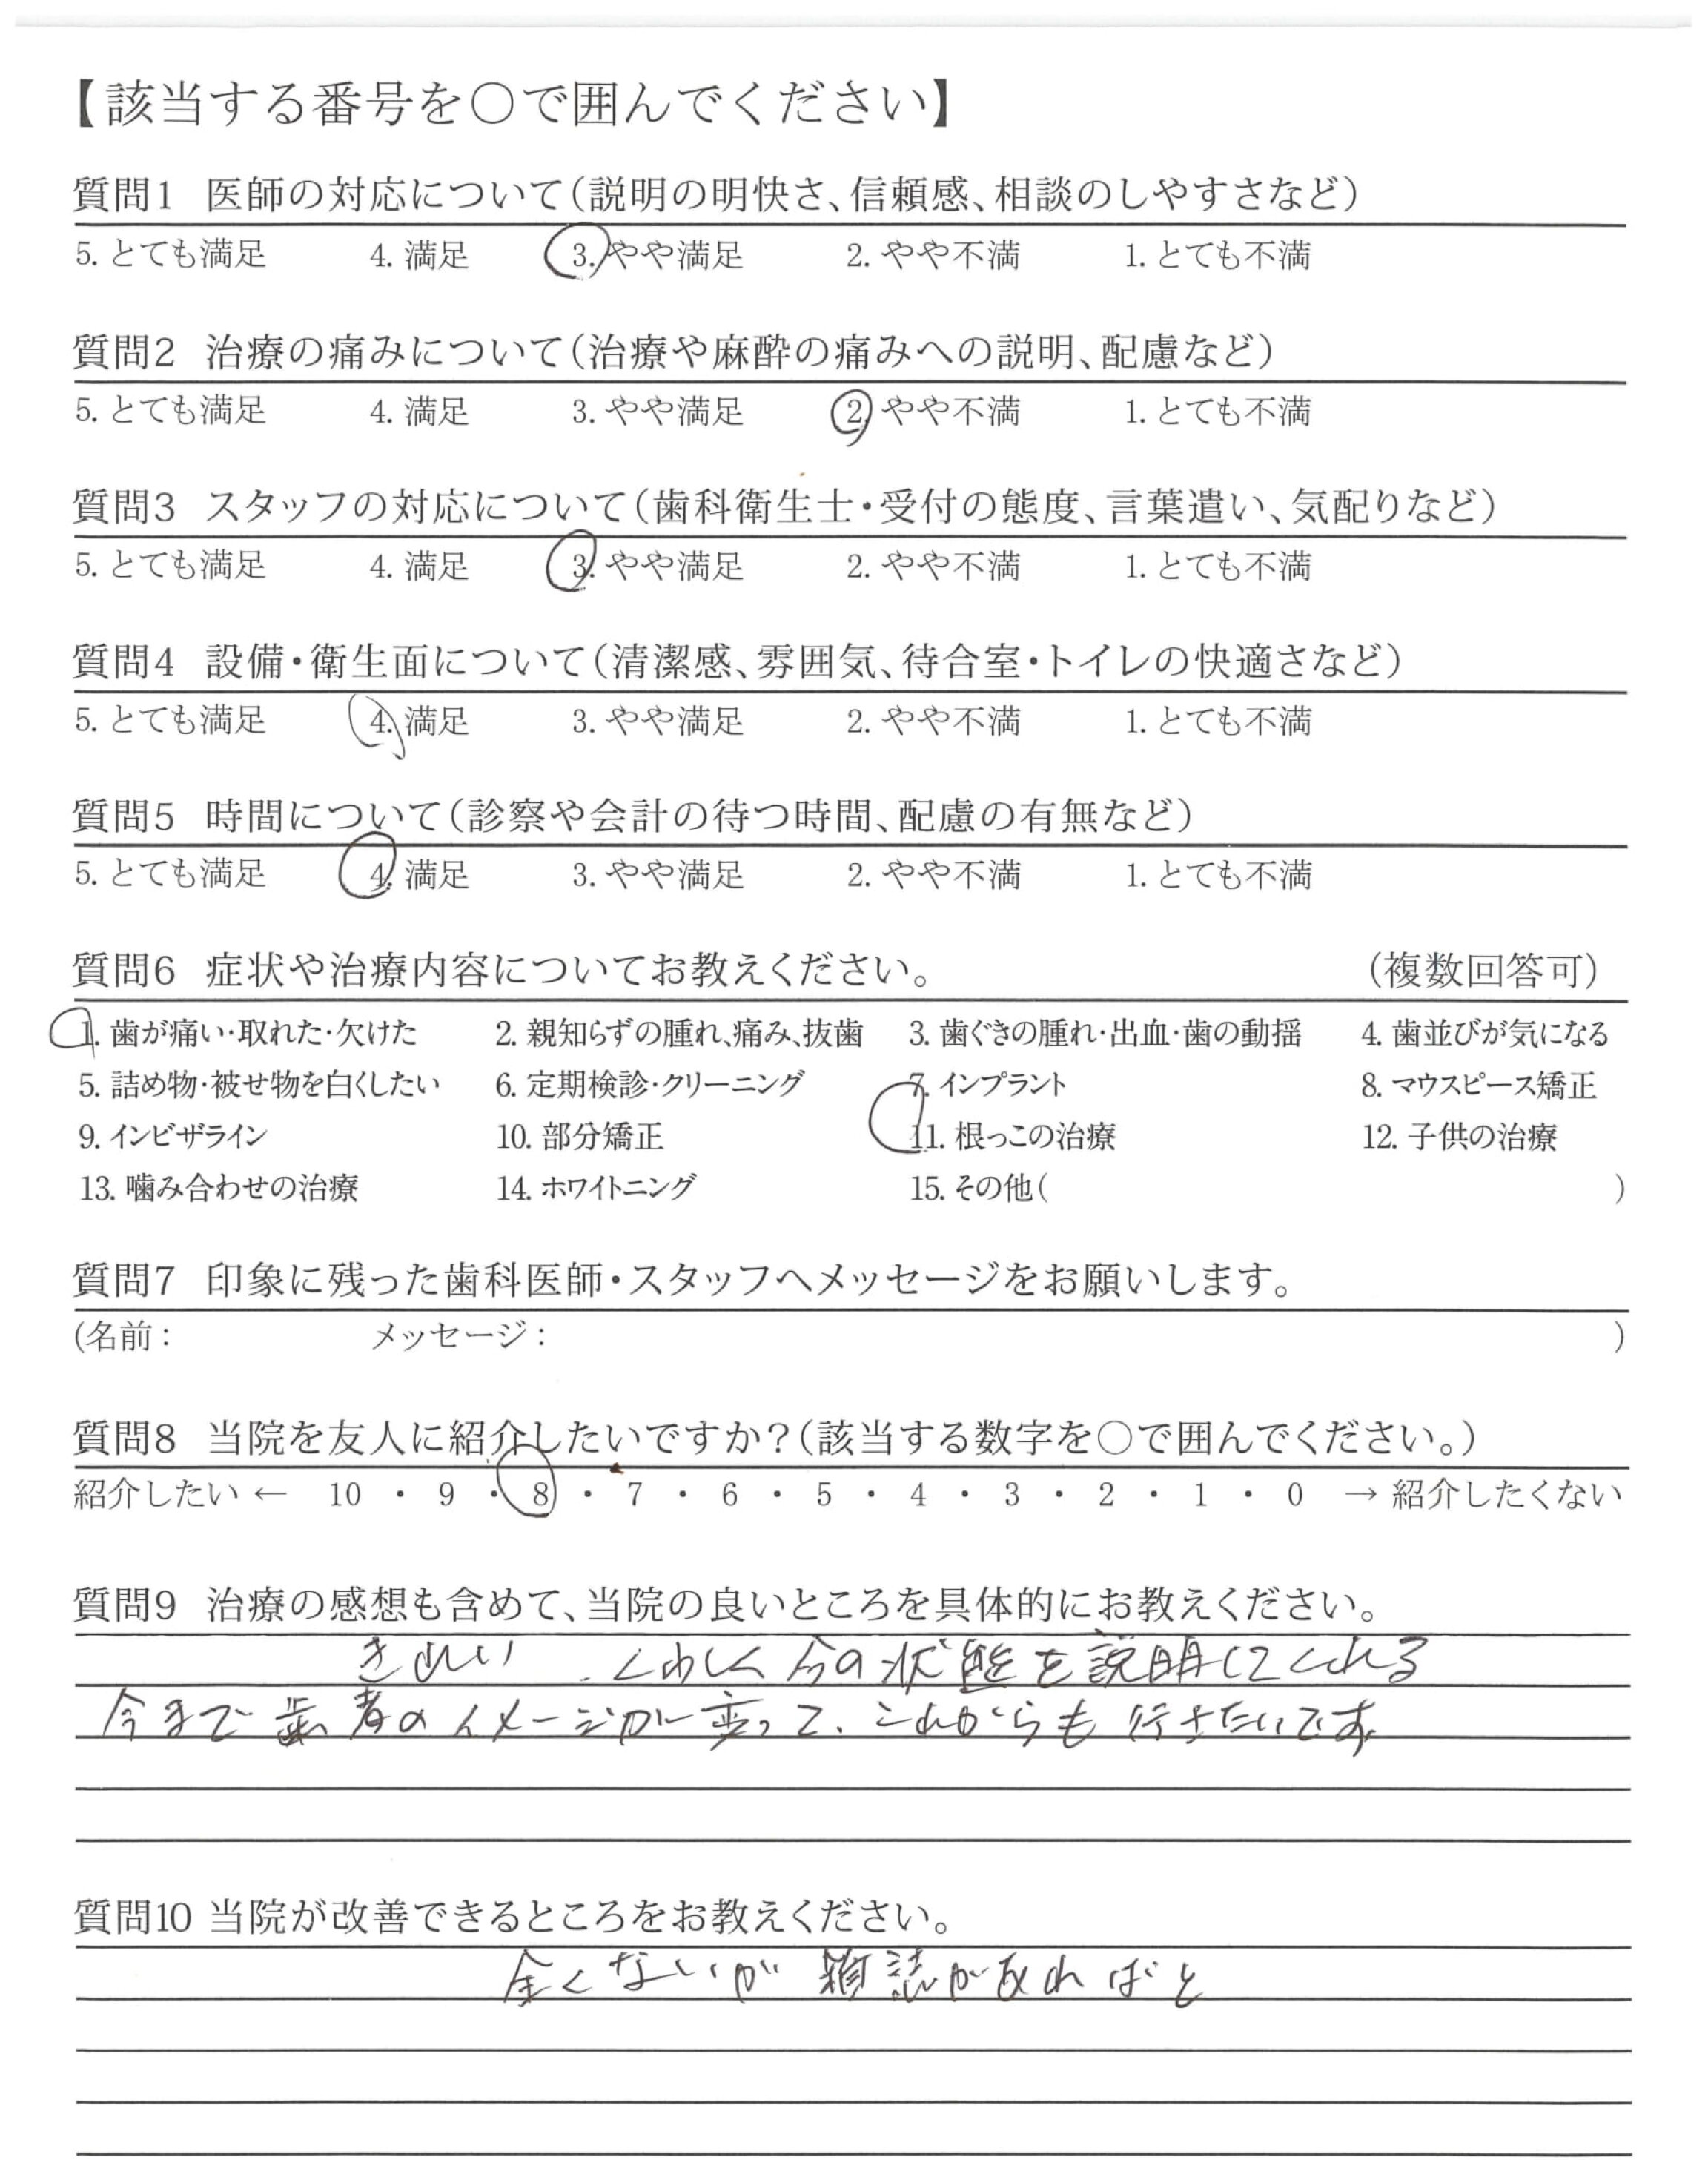 【該当する番号を○で囲んでください】
質問1 医師の対応について(説明の明快さ、信頼感、相談のしやすさなど)
5. とても満足 4. 満足 3. やや満足 2. やや不満 1. とても不満
質問2 治療の痛みについて(治療や麻酔の痛みへの説明、配慮など)
5. とても満足 4. 満足 3. やや満足 2 やや不満 1. とても不満
質問3 スタッフの対応について(歯科衛生士・受付の態度、言葉遣い、気配りなど)
5. とても満足 4. 満足 3. やや満足 2. やや不満 1. とても不満
質問4 設備・衛生面について(清潔感、雰囲気、待合室・トイレの快適さなど)
5. とても満足 4. 満足 3. やや満足 2. やや不満 1. とても不満
質問5 時間について(診察や会計の待つ時間、配慮の有無など)
5. とても満足 4. 満足 3. やや満足 2. やや不満 1. とても不満
質問6 症状や治療内容についてお教えください。 (複数回答可)
1. 歯が痛い・取れた・欠けた 2. 親知らずの腫れ、痛み、抜歯 3. 歯ぐきの腫れ・出血・歯の動揺 4. 歯並びが気になる
5. 詰め物・被せ物を白くしたい 6. 定期検診・クリーニング 7. インプラント 8. マウスピース矯正
9. インビザライン 10. 部分矯正 11. 根っこの治療 12. 子供の治療
13. 噛み合わせの治療 14. ホワイトニング 15. その他( )
質問7 印象に残った歯科医師・スタッフへメッセージをお願いします。
(名前: メッセージ: )
質問8 当院を友人に紹介したいですか?(該当する数字を○で囲んでください。)
紹介したい ← 10 ・ 9 ・ 8 ・ 7 ・ 6 ・ 5 ・ 4 ・ 3 ・ 2 ・ 1 ・ 0 → 紹介したくない
質問9 治療の感想も含めて、当院の良いところを具体的にお教えください。
きれい 、くわしく今の状態を説明してくれる
今まで歯者のイメージが変って、これからも行きたいです
質問10 当院が改善できるところをお教えください。
全くないが 雑誌があればと